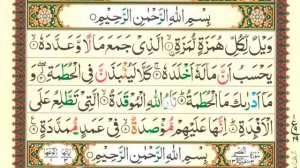 بِسْمِ اللهِ الرَّحْمٰنِ الرَّحِيْمِ
وَيْلٌ لِّكُلِّ هُمَزَةٍ لُّمَزَةِ ۙ الَّذِىْ جَمَعَ مَالًا وَّعَدَّدَهٗ ۙ
يَحْسَبُ اَنَّ مَالَهٗٓ اَخْلَدَهٗ ۚ كَلَّا لَيُنْۢبَذَنَّ فِى الْحُطَمَةِ ۖ وَ
مَآ اَدْرٰىكَ مَا الْحُطَمَةُ ؕ نَارُ اللهِ الْمُوْقَدَةُ ۙ الَّتِىْ تَطَّلِعُ عَلَى
الْاَفْـِٕدَةِ ؕ اِنَّهَا عَلَيْهِمْ مُّؤْصَدَةٌ ۙ فِىْ عَمَدٍ مُّمَدَّدَةٍ
بِسْمِ اللهِ الرَّحْمٰنِ الرَّحِيْمِ